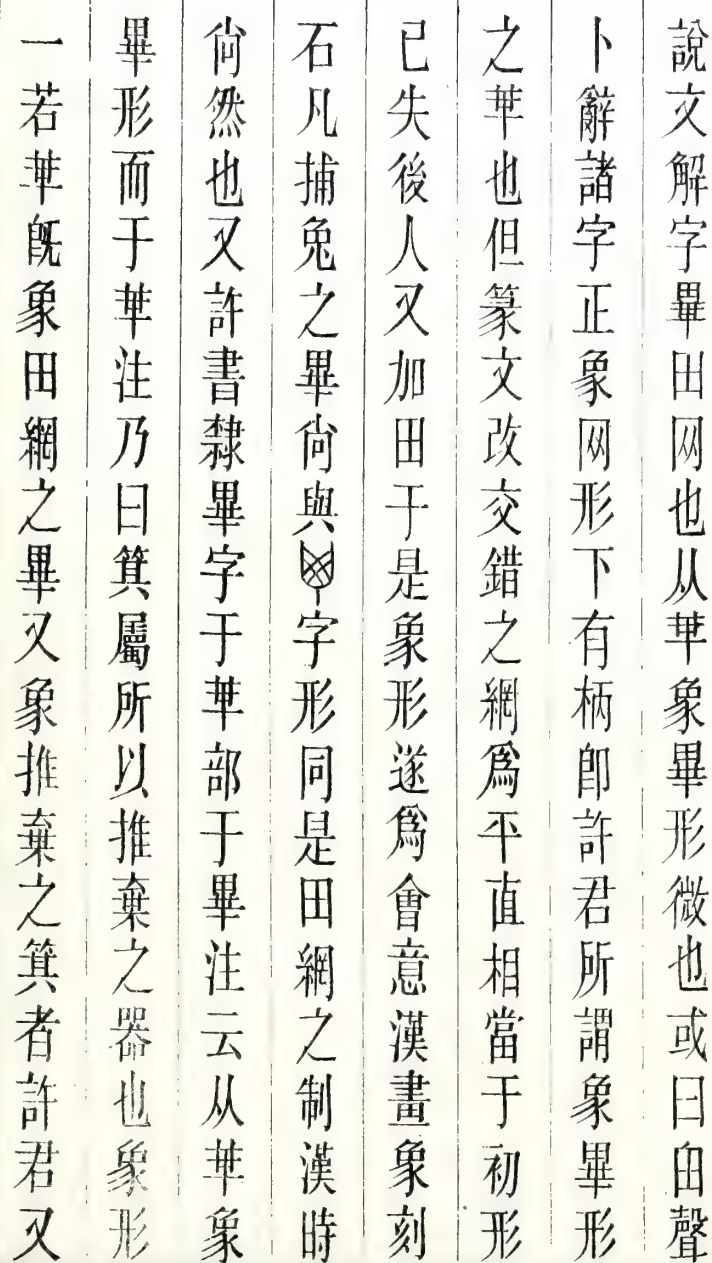 說文解字畢田网也从𠦒象畢形微也或曰甶聲
卜辭諸字正象网形下有柄卽許君所謂象畢形
之𠦒也但篆文改交錯之網爲平直相當于初形
已失後人又加田于是象形遂爲會意漢畫象刻
石凡捕兔之畢尙與字形同是田網之制漢時
尙然也又許書隸畢字于𠦒部于畢注云从𠦒象
畢形而于𠦒注乃曰箕屬所以推棄之器也象形
一若𠦒旣象田網之畢又象推棄之箕者許君又